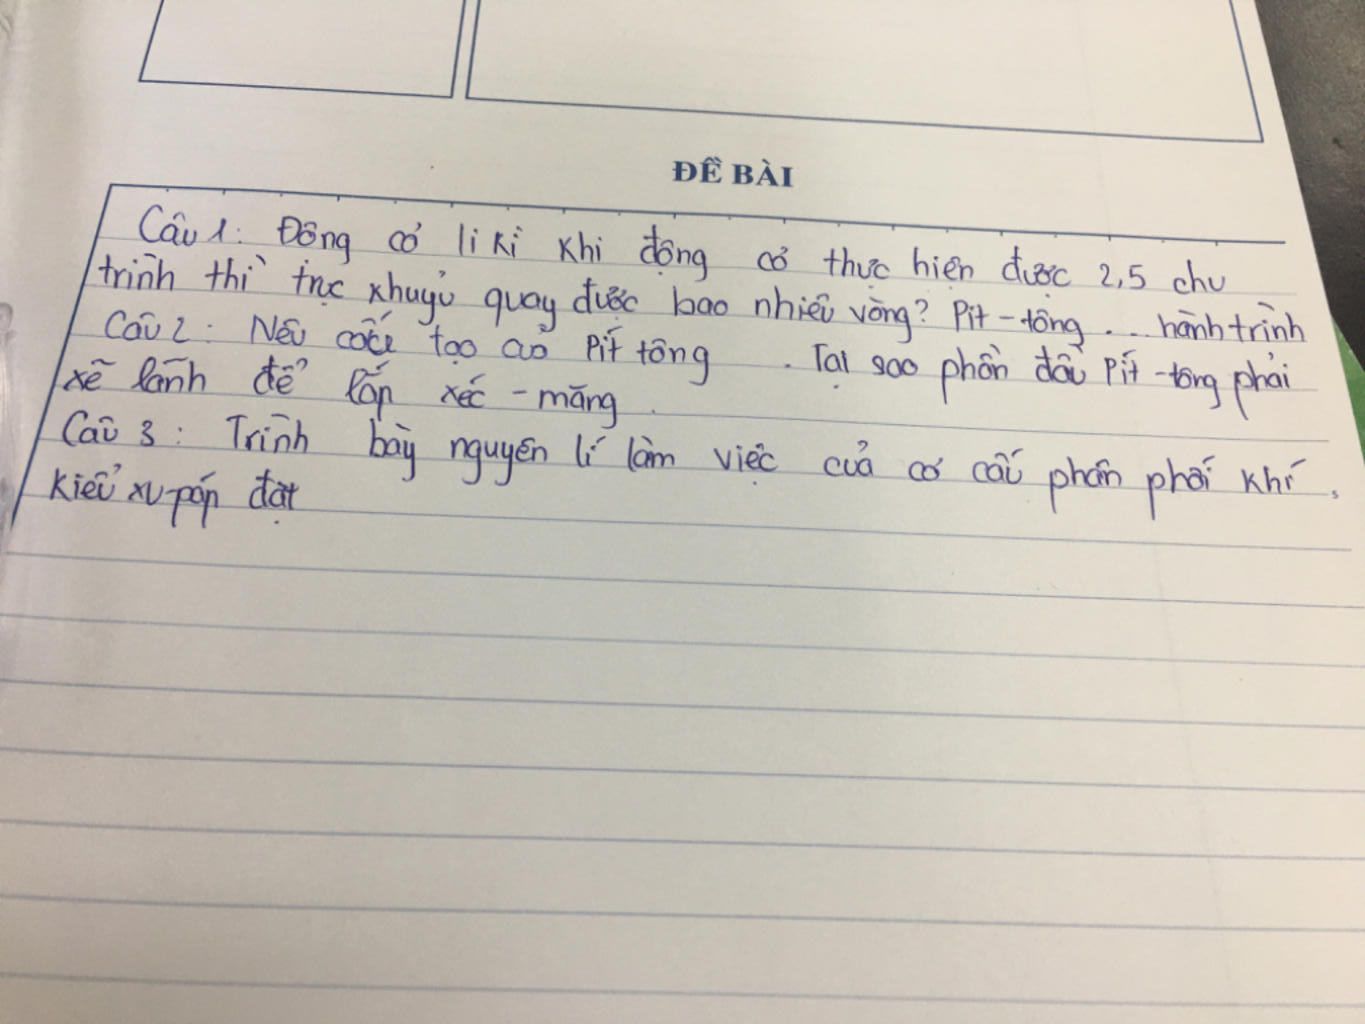 ĐỀ BÀI
Câu 1: Động cơ li kì khi động cơ thực hiện được 2,5 chu
trình thì trục khuỷu quay được bao nhiêu vòng? Pit-tông ... hành trình
Câu 2: Nêu cấu tạo của Pít tông . Tại sao phần đầu Pít-tông phải
xẽ lãnh để lắp xéc-măng.
Câu 3: Trình bày nguyên lí làm việc của cơ cấu phân phối khí
kiểu xu-páp đặt